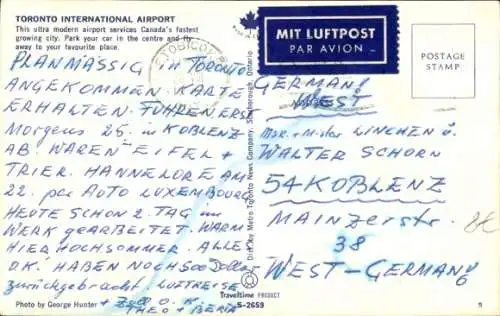 TORONTO INTERNATIONAL AIRPORT
This ultra modern airport services Canada's fastest
growing city. Park your car in the centre and fly
away to your favourite place.
PLANMÄSSIG in TORONTO
ANGEKOMMEN. KARTE
ERHALTEN. FUHREN ERST
Morgens 25. in KOBLENZ
AB. WAREN EIFEL +
TRIER. HANNELORE AM
22. per AUTO LUXEMBOURG
HEUTE SCHON 2. TAG im
WERK gEARBEITET. WARM
HIER HOCHSOMMER. ALLES
O.K. HABEN NOCH 500 Dollar
zurückgebracht LUFTREISE
+ Zoll O.K.
THEO + 
Photo by George Hunter
ETOBICOKE
MIT LUFTPOST
PAR AVION
POSTAGE
STAMP
GERMANY
WEST
LINCHEN u.
WALTER SCHORN
54 KOBLENZ
MAINZERstr.
38
WEST-GERMANY
6
Dist. by Metro Toronto News Company, Scarborough, Ontario
Traveltime PRODUCT
S-2659